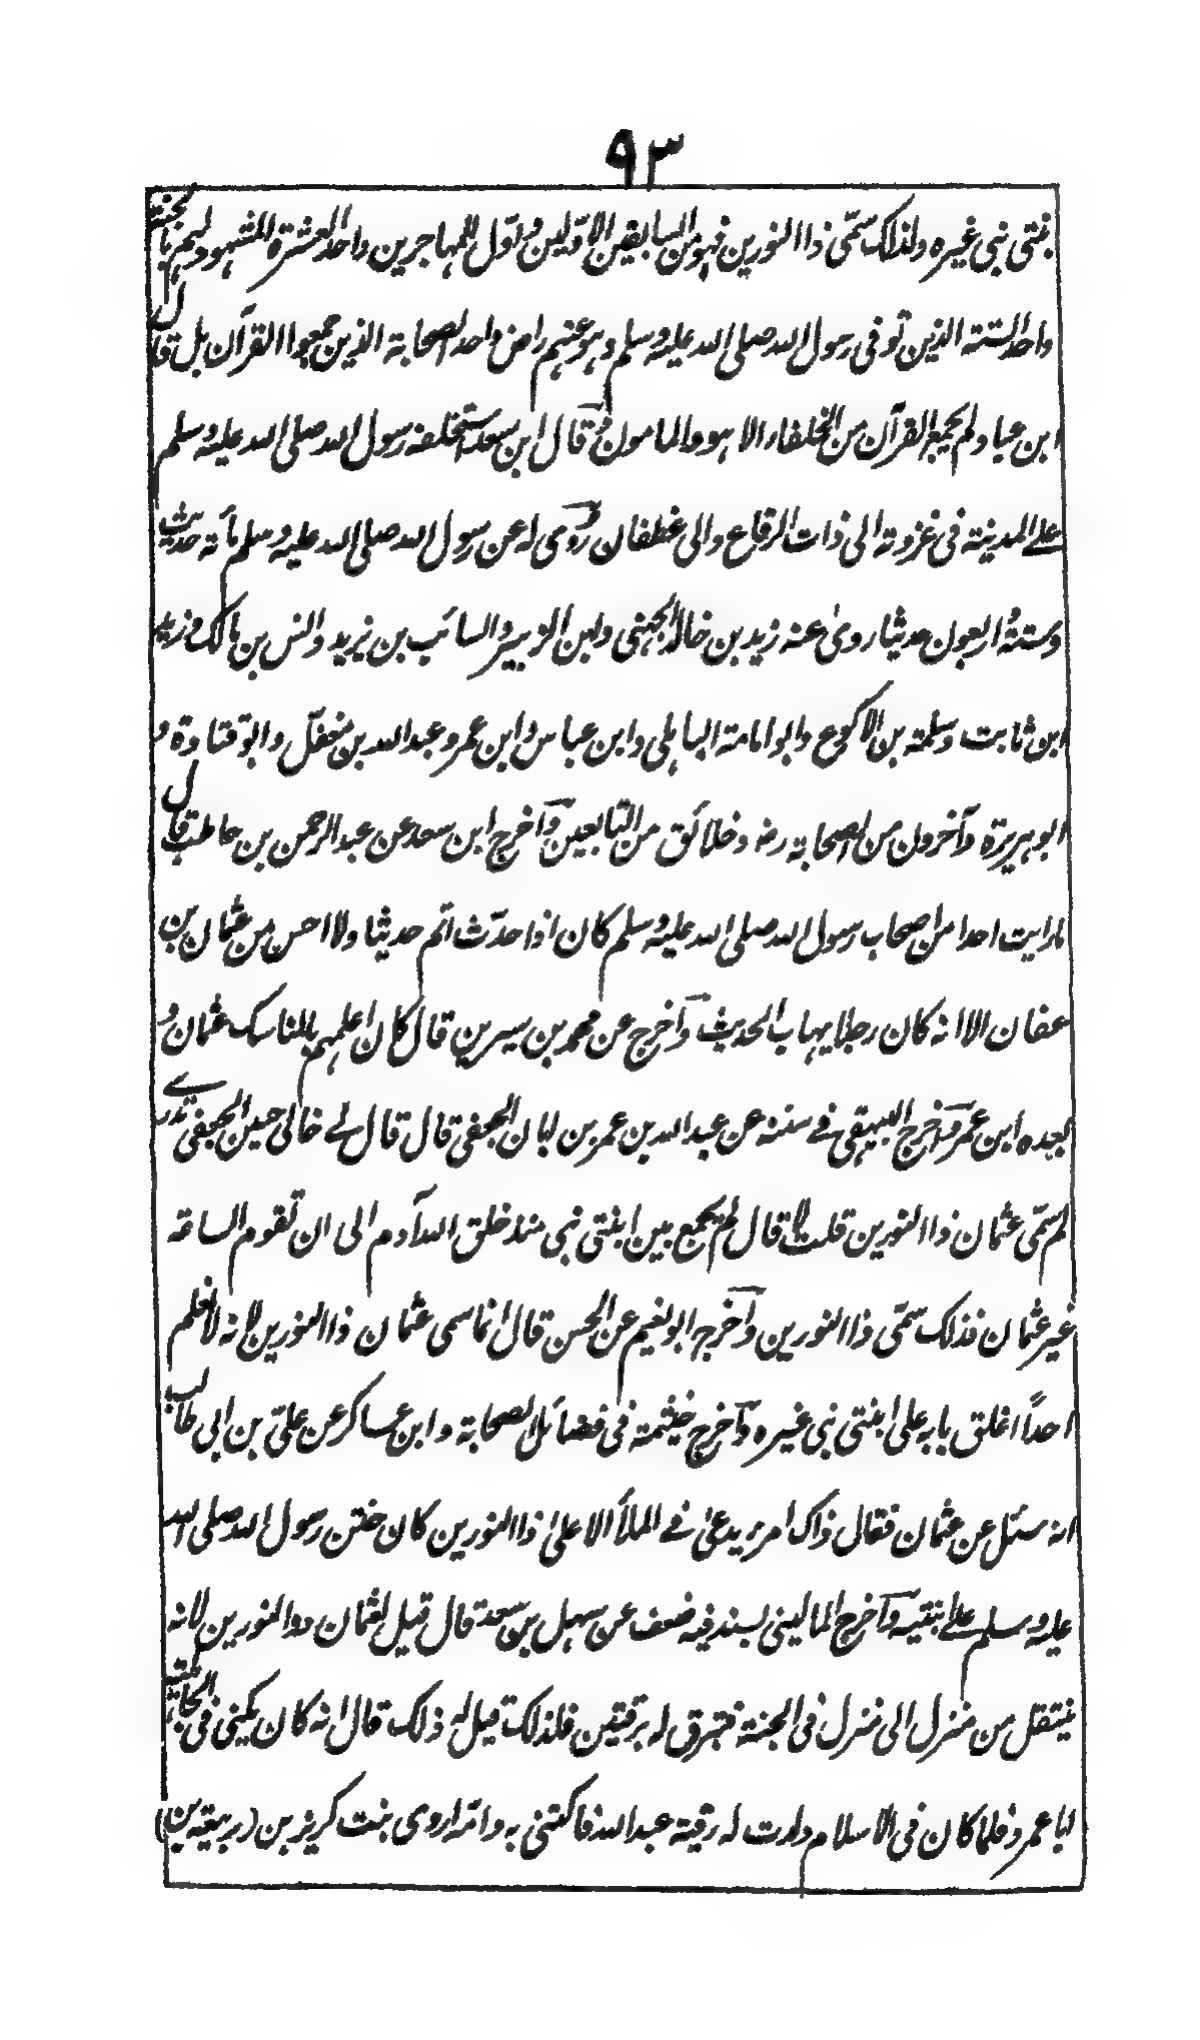 ٩٣
بنتي نبي غيره ولذلك سمّى ذا النورين فهو من السابقين الاوّلين واوّل المهاجرين واحد العشرة المشهود لهم بالجنة
واحد الستة الذين توفى رسول الله صلى الله عليه وسلم وهو عنهم راض واحد الصحابة الذين جمعوا القرآن بل قال
ابن عباد ولم يجمع القرآن من الخلفاء الا هو والمامون و قال ابن سعد استخلفه رسول الله صلى الله عليه وسلم
على المدينة فى غزوته الى ذات الرقاع والى غطفان روى له عن رسول الله صلى الله عليه وسلم مأتة حديث
وستة واربعون حديثا روىٰ عنه زيد بن خالد الجهنى وابن الزبير والسائب بن يزيد وانس بن مالك وزيد
ابن ثابت وسلمة بن الاكوع وابو امامة الباهلى وابن عباس وابن عمر وعبد الله بن مغفّل وابو قتادة و
ابو هريرة وآخرون من الصحابة رضه وخلائق من التابعين وآخرج ابن سعد عن عبد الرحمن بن حاطب قال
مارايت احدا من اصحاب رسول الله صلى الله عليه وسلم كان اذا حدّث اتم حديثا ولا احسن من عثمان بن
عفان الا انه كان رجلا يهاب الحديث وآخرج عن محمد بن سيرين قال كان اعلمهم بالمناسك عثمان و
بعده ابن عمر وآخرج البيهقى فے سننه عن عبد الله بن عمر بن ابان الجعفى قال قال لے خالى حسين الجعفى تدرے
لم سمّى عثمان ذا النورين قلت لا قال لم يجمع بين ابنتى نبى منذ خلق الله آدم الى ان تقوم الساعة
غير عثمان فذلك سمّى ذا النورين وآخرج ابو نعيم عن الحسن قال انما سمى عثمان ذا النورين لانه لا نعلم
احداً اغلق بابه على ابنتى نبى غيره وآخرج خيثمة فى فضائل الصحابة وابن عساكر عن علىّ بن ابى طالب
انه سئل عن عثمان فقال ذاك امرء يدعىٰ فے الملأ الاعلىٰ ذا النورين كان ختن رسول الله صلى الله
عليه وسلم علے ابنتيه وآخرج المالينى بسند فيه ضعف عن سهل بن سعد قال قيل لعثمان ذو النورين لانه
ينتقل من منزل الى منزل فى الجنة فتبرق له برقتين فلذلك قيل له ذلك قال انه كان يكنى فى الجاهلية
ابا عمرو فلما كان فى الاسلام ولدت له رقية عبد الله فاكتنى به وامّه اروى بنت كريز بن (ربيعة بن)